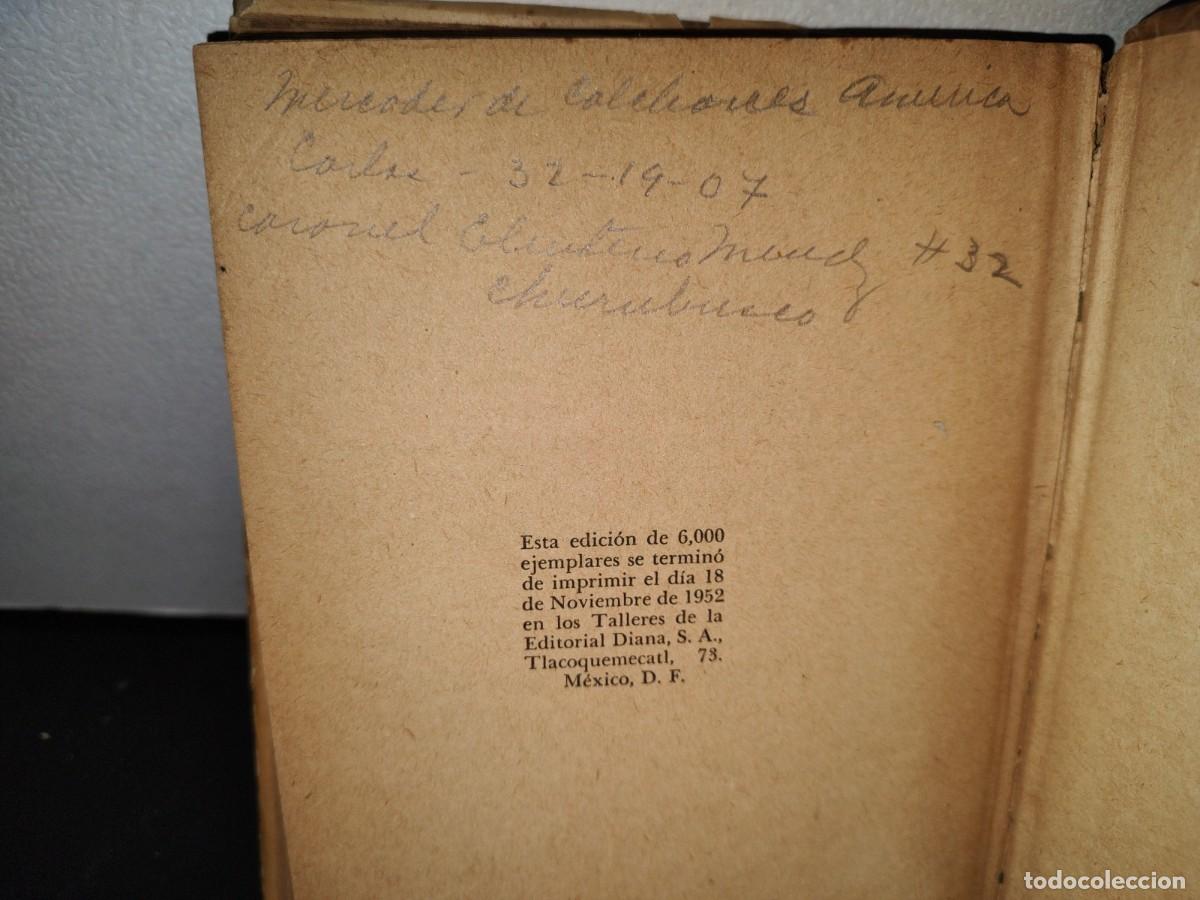 Mercader de Colchones America
Carlos - 32-19-07
Coronel Eleuterio Mendz #32
Churubusco
Esta edición de 6,000
ejemplares se terminó
de imprimir el día 18
de Noviembre de 1952
en los Talleres de la
Editorial Diana, S. A.,
Tlacoquemecatl, 73.
México, D. F.
todocoleccion